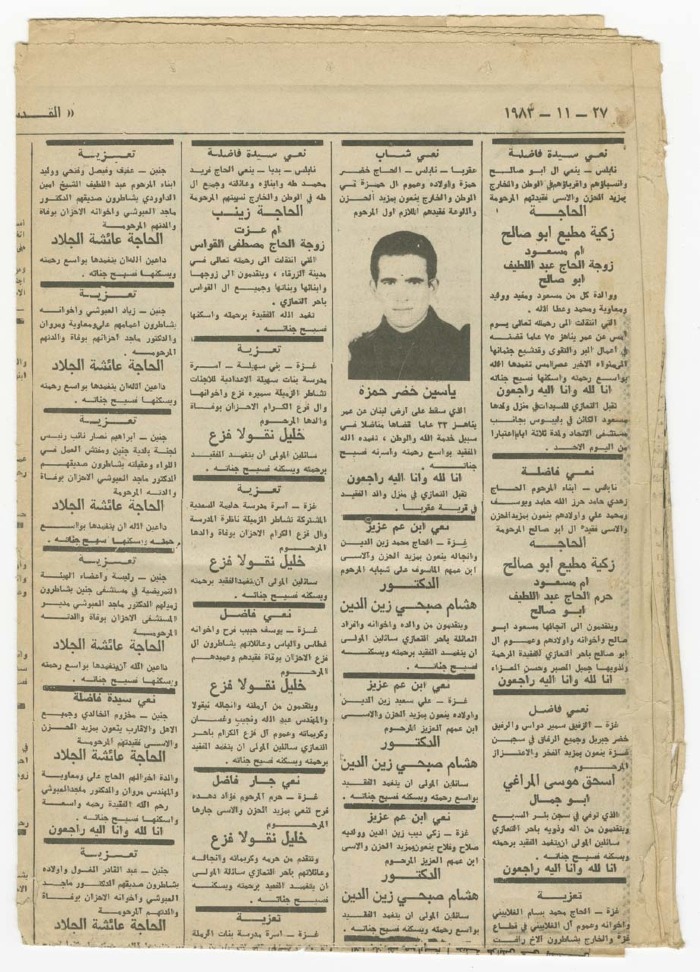 ٢٧ – ١١ – ١٩٨٣
« القدس
نعي سيدة فاضلة
نابلس – ينعي ال ابو صالح
وانسباؤهم واقرباؤهم في الوطن والخارج
بمزيد الحزن والاسى فقيدتهم المرحومة
الحاجة
زكية مطيع ابو صالح
ام مسعود
زوجة الحاج عبد اللطيف
ابو صالح
ووالدة كل من مسعود ومفيد ووليد
ومعاوية ومحمد وعطا الله
التي انتقلت الى رحمته تعالى يوم
امس عن عمر يناهز ٧٥ عاما قضته
في اعمال البر والتقوى وقد شيع جثمانها
الى مثواه الاخير عصر امس تغمدها الله
بواسع رحمته واسكنها فسيح جناته
انا لله وانا اليه راجعون
تقبل التعازي للسيدات في منزل ولدها
مسعود الكائن في بلوس بجانب
مستشفى الاتحاد ولمدة ثلاثة ايام اعتبارا
من اليوم الاحد .
نعي فاضلة
نابلس – ابناء المرحوم الحاج
زهدي حامد حرز الله حامد ويوسف
ومحمد علي واولادهم ينعون بمزيد الحزن
والاسى فقيدة ال ابو صالح المرحومة
الحاجه
زكية مطيع ابو صالح
ام مسعود
حرم الحاج عبد اللطيف
ابو صالح
ويتقدمون الى انجالها مسعود ابو
صالح واخوانه واولادهم وعموم ال
ابو صالح باحر التعازي للفقيدة الرحمة
ولذويها جميل الصبر وحسن العزاء
انا لله وانا اليه راجعون
نعي فاضل
غزة – الرفيق سمير دواس والرفيق
خضر جبريل وجميع الرفاق في سجن
غزة ينعون بمزيد الفخر والاعتزاز
المرحوم
اسحق موسى المراغي
ابو جمال
الذي توفي في سجن بئر السبع
ويتقدمون من اله وذويه باحر التعازي
سائلين المولى ان يتغمد الفقيد بواسع
رحمته ويسكنه فسيح جناته
انا لله وانا اليه راجعون
تعزية
غزة – الحاج محمد بسام الغلاييني
واخوانه وعموم ال الغلاييني في قطاع
غزة والخارج يشاطرون الاخ رافت
نعي شاب
عقربا – نابلس – الحاج خضر
حمزة واولاده وعموم ال حمزة في
الوطن والخارج ينعون بمزيد الحزن
واللوعة فقيدهم الملازم اول المرحوم
ياسين خضر حمزة
الذي سقط على ارض لبنان عن عمر
يناهز ٣٣ عاما قضاها مناضلا في
سبيل خدمة الله والوطن ، تغمده الله
الفقيد بواسع رحمته واسكنه فسيح جناته
انا لله وانا اليه راجعون
تقبل التعازي في منزل والد الفقيد
في قرية عقربا .
نعي ابن عم عزيز
غزة – الحاج محمد زين الدين
وانجاله ينعون بمزيد الحزن والاسى
ابن عمهم المأسوف على شبابه المرحوم
الدكتور
هشام صبحي زين الدين
ويتقدمون من والده واخوانه وافراد
العائلة باحر التعازي سائلين المولى
ان يتغمد الفقيد برحمته ويسكنه
فسيح جناته .
نعي ابن عم عزيز
غزة – علي سعيد زين الدين
واولاده ينعون بمزيد الحزن والاسى
ابن عمهم العزيز المرحوم
الدكتور
هشام صبحي زين الدين
سائلين المولى ان يتغمد الفقيد
بواسع رحمته ويسكنه فسيح جناته .
نعي ابن عم عزيز
غزة – زكي ذيب زين الدين وولديه
صلاح وفلاح ينعون بمزيد الحزن والاسى
ابن عمهم العزيز المرحوم
الدكتور
هشام صبحي زين الدين
سائلين المولى ان يتغمد الفقيد
بواسع رحمته ويسكنه فسيح جناته .
نعي سيدة فاضلة
نابلس – بديا – ينعي الحاج فريد
محمد طه وابناؤه وعائلته وجميع ال
طه في الوطن والخارج نسيبتهم المرحومة
الحاجة زينب
ام عزت
زوجة الحاج مصطفى القواس
التي انتقلت الى رحمته تعالى في
مدينة الزرقاء ، ويتقدمون الى زوجها
وابنائها وبناتها وجميع ال القواس
باحر التعازي .
تغمد الله الفقيدة برحمته واسكنها
فسيح جناته .
تعزية
غزة – بني سهيلة – اسرة
مدرسة بنات سهيلة الاعدادية للاجئات
تشاطر الزميلة سميره فزع واخوانها
وال فزع الكرام الاحزان بوفاة
والدها المرحوم
خليل نقولا فزع
سائلين المولى ان يتغمد الفقيد
برحمته ويسكنه فسيح جناته .
تعزية
غزة – اسرة مدرسة حليمة السعدية
المشتركة تشاطر الزميلة ناظرة المدرسة
وال فزع الكرام الاحزان بوفاة والدها
المرحوم
خليل نقولا فزع
سائلين المولى ان يتغمد الفقيد برحمته
ويسكنه فسيح جناته .
نعي فاضل
غزة – يوسف حبيب فرح واخوانه
غطاس والياس وعائلاتهم يشاطرون ال
فزع الاحزان بوفاة فقيدهم وعميدهم
المرحوم
خليل نقولا فزع
ويتقدمون من ارملته وانجاله نيقولا
والمهندس عبد الله ونجيب وغسان
وكريماته وعموم ال فزع الكرام باحر
التعازي سائلين المولى ان يتغمد الفقيد
برحمته ويسكنه فسيح جناته .
نعي جار فاضل
غزة – حرم المرحوم فؤاد دهده
فرح تنعي بمزيد الحزن والاسى جارها
المرحوم
خليل نقولا فزع
وتتقدم من حرمه وكريماته وانجاله
وعائلاتهم باحر التعازي سائلة المولى
ان يتغمد الفقيد برحمته ويسكنه
فسيح جناته .
تعزية
غزة – اسرة مدرسة بنات الرملة
تعزية
جنين – عفيف وفيصل وفتحي ووليد
ابناء المرحوم عبد اللطيف الشيخ امين
الداوودي يشاطرون صديقهم الدكتور
ماجد العبوشي واخوانه الاحزان بوفاة
والدتهم المرحومة
الحاجة عائشة الجلاد
داعين الله ان يتغمدها بواسع رحمته
ويسكنها فسيح جناته .
تعزية
جنين – زياد العبوشي واخوانه
يشاطرون اعمامهم علي ومعاوية ومروان
والدكتور ماجد احزانهم بوفاة والدتهم
المرحومة
الحاجة عائشة الجلاد
داعين الله ان يتغمدها بواسع رحمته
ويسكنها فسيح جناته .
تعزية
جنين – ابراهيم نصار نائب رئيس
لجنة بلدية جنين ومفتش العمل في
اللواء وعقيلته يشاطرون صديقهم
الدكتور ماجد العبوشي الاحزان بوفاة
والدته المرحومة
الحاجة عائشة الجلاد
داعين الله ان يتغمدها بواسع
رحمته ويسكنها فسيح جناته .
تعزية
جنين – رئيسة واعضاء الهيئة
التمريضية في مستشفى جنين يشاطرون
زميلهم الدكتور ماجد العبوشي مدير
المستشفى الاحزان بوفاة والدته
المرحومة
الحاجة عائشة الجلاد
داعين الله ان يتغمدها بواسع رحمته
ويسكنها فسيح جناته .
نعي سيدة فاضلة
جنين – مخزوم الخالدي وجميع
الاهل والاقارب ينعون بمزيد الحزن
والاسى فقيدتهم المرحومة
الحاجة عائشة الجلاد
والدة اخوالهم الحاج علي ومعاوية
والمهندس مروان والدكتور ماجد العبوشي
رحم الله الفقيدة رحمه واسعة
واسكنها فسيح جناته .
انا لله وانا اليه راجعون
تعزية
جنين – عبد القادر الغول واولاده
يشاطرون صديقهم الدكتور ماجد
العبوشي واخوانه الاحزان بوفاة
والدتهم المرحومة
الحاجة عائشة الجلاد